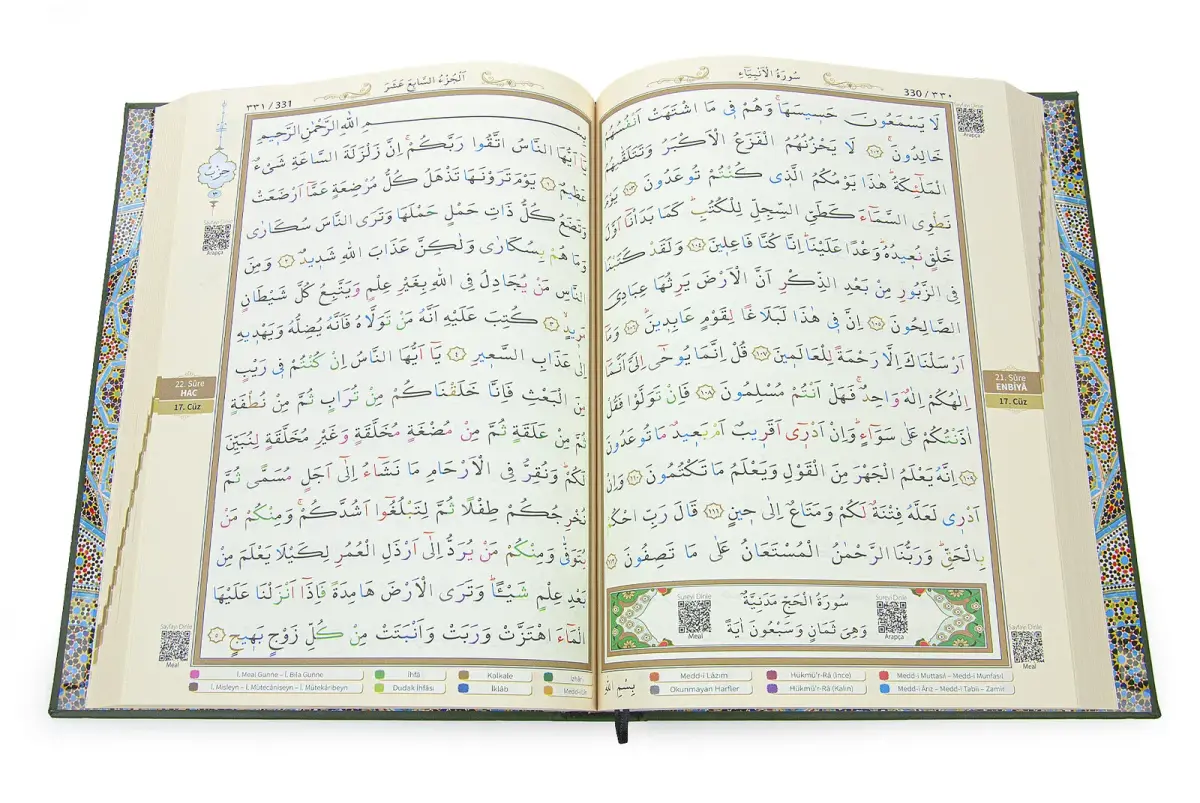 سُورَةُ الْاَنْبِيَٓاءِ
330 / ٣٣٠
لَا يَسْمَعُونَ حَس۪يسَهَاۚ وَهُمْ ف۪ي مَا اشْتَهَتْ اَنْفُسُهُمْ
خَالِدُونَۚ ﴿١٠٢﴾ لَا يَحْزُنُهُمُ الْفَزَعُ الْاَكْبَرُ وَتَتَلَقّٰيهُمُ
الْمَلٰٓئِكَةُۜ هٰذَا يَوْمُكُمُ الَّذ۪ي كُنْتُمْ تُوعَدُونَ ﴿١٠٣﴾ يَوْمَ
نَطْوِي السَّمَٓاءَ كَطَيِّ السِّجِلِّ لِلْكُتُبِۜ كَمَا بَدَأْنَٓا اَوَّلَ
خَلْقٍ نُع۪يدُهُۜ وَعْدًا عَلَيْنَاۜ اِنَّا كُنَّا فَاعِل۪ينَ ﴿١٠٤﴾ وَلَقَدْ كَتَبْنَا
فِي الزَّبُورِ مِنْ بَعْدِ الذِّكْرِ اَنَّ الْاَرْضَ يَرِثُهَا عِبَادِيَ
الصَّالِحُونَ ﴿١٠٥﴾ اِنَّ ف۪ي هٰذَا لَبَلَاغًا لِقَوْمٍ عَابِد۪ينَۜ ﴿١٠٦﴾ وَمَٓا
اَرْسَلْنَاكَ اِلَّا رَحْمَةً لِلْعَالَم۪ينَ ﴿١٠٧﴾ قُلْ اِنَّمَا يُوحٰٓى اِلَيَّ اَنَّمَٓا
اِلٰهُكُمْ اِلٰهٌ وَاحِدٌۚ فَهَلْ اَنْتُمْ مُسْلِمُونَ ﴿١٠٨﴾ فَاِنْ تَوَلَّوْا فَقُلْ
اٰذَنْتُكُمْ عَلٰى سَوَٓاءٍۜ وَاِنْ اَدْر۪ٓي اَقَر۪يبٌ اَمْ بَع۪يدٌ مَا تُوعَدُونَ
﴿١٠٩﴾ اِنَّهُ يَعْلَمُ الْجَهْرَ مِنَ الْقَوْلِ وَيَعْلَمُ مَا تَكْتُمُونَ ﴿١١٠﴾ وَاِنْ
اَدْر۪ي لَعَلَّهُ فِتْنَةٌ لَكُمْ وَمَتَاعٌ اِلٰى ح۪ينٍ ﴿١١١﴾ قَالَ رَبِّ احْكُمْ
بِالْحَقِّۜ وَرَبُّنَا الرَّحْمٰنُ الْمُسْتَعَانُ عَلٰى مَا تَصِفُونَ ﴿١١٢﴾
سُورَةُ الْحَجِّ مَدَنِيَّةٌ
وَهِيَ ثَمَانٍ وَسَبْعُونَ اٰيَةً
Sureyi Dinle
Arapça
Sureyi Dinle
Meal
Sayfayı Dinle
Arapça
21. Sûre
ENBİYÂ
17. Cüz
Sayfayı Dinle
Meal
Medd-i Lâzım
Hükmü'r-Râ (İnce)
Medd-i Muttasıl – Medd-i Munfasıl
Okunmayan Harfler
Hükmü'r-Râ (Kalın)
Medd-i Ârız – Medd-i Tabîi – Zamir
بِسْمِ اللّٰهِ
اَلْجُزْءُ السَّابِعُ عَشَرَ
٣٣١ / 331
بِسْمِ اللّٰهِ الرَّحْمٰنِ الرَّح۪يمِ
يَٓا اَيُّهَا النَّاسُ اتَّقُوا رَبَّكُمْۚ اِنَّ زَلْزَلَةَ السَّاعَةِ شَيْءٌ
عَظ۪يمٌ ﴿١﴾ يَوْمَ تَرَوْنَهَا تَذْهَلُ كُلُّ مُرْضِعَةٍ عَمَّٓا اَرْضَعَتْ
وَتَضَعُ كُلُّ ذَاتِ حَمْلٍ حَمْلَهَا وَتَرَى النَّاسَ سُكَارٰى
وَمَا هُمْ بِسُكَارٰى وَلٰكِنَّ عَذَابَ اللّٰهِ شَد۪يدٌ ﴿٢﴾ وَمِنَ
النَّاسِ مَنْ يُجَادِلُ فِي اللّٰهِ بِغَيْرِ عِلْمٍ وَيَتَّبِعُ كُلَّ شَيْطَانٍ
مَر۪يدٍۙ ﴿٣﴾ كُتِبَ عَلَيْهِ اَنَّهُ مَنْ تَوَلَّاهُ فَاَنَّهُ يُضِلُّهُ وَيَهْد۪يهِ
اِلٰى عَذَابِ السَّع۪يرِ ﴿٤﴾ يَٓا اَيُّهَا النَّاسُ اِنْ كُنْتُمْ ف۪ي رَيْبٍ
مِنَ الْبَعْثِ فَاِنَّا خَلَقْنَاكُمْ مِنْ تُرَابٍ ثُمَّ مِنْ نُطْفَةٍ
ثُمَّ مِنْ عَلَقَةٍ ثُمَّ مِنْ مُضْغَةٍ مُخَلَّقَةٍ وَغَيْرِ مُخَلَّقَةٍ لِنُبَيِّنَ
لَكُمْۜ وَنُقِرُّ فِي الْاَرْحَامِ مَا نَشَٓاءُ اِلٰٓى اَجَلٍ مُسَمًّى ثُمَّ
نُخْرِجُكُمْ طِفْلًا ثُمَّ لِتَبْلُغُٓوا اَشُدَّكُمْۚ وَمِنْكُمْ مَنْ
يُتَوَفّٰى وَمِنْكُمْ مَنْ يُرَدُّ اِلٰٓى اَرْذَلِ الْعُمُرِ لِكَيْلَا يَعْلَمَ مِنْ
بَعْدِ عِلْمٍ شَيْـًٔاۜ وَتَرَى الْاَرْضَ هَامِدَةً فَاِذَٓا اَنْزَلْنَا عَلَيْهَا
الْمَٓاءَ اهْتَزَّتْ وَرَبَتْ وَاَنْبَتَتْ مِنْ كُلِّ زَوْجٍ بَه۪يجٍ ﴿٥﴾
حزب
Sayfayı Dinle
Arapça
22. Sûre
HAC
17. Cüz
Sayfayı Dinle
Meal
İ. Meal Gunne – İ. Bila Gunne
İhfâ
Kalkale
İzhâr
İ. Misleyn – İ. Mütecâniseyn – İ. Mütekâribeyn
Dudak İhfâsı
İklâb
Medd-i Lîn